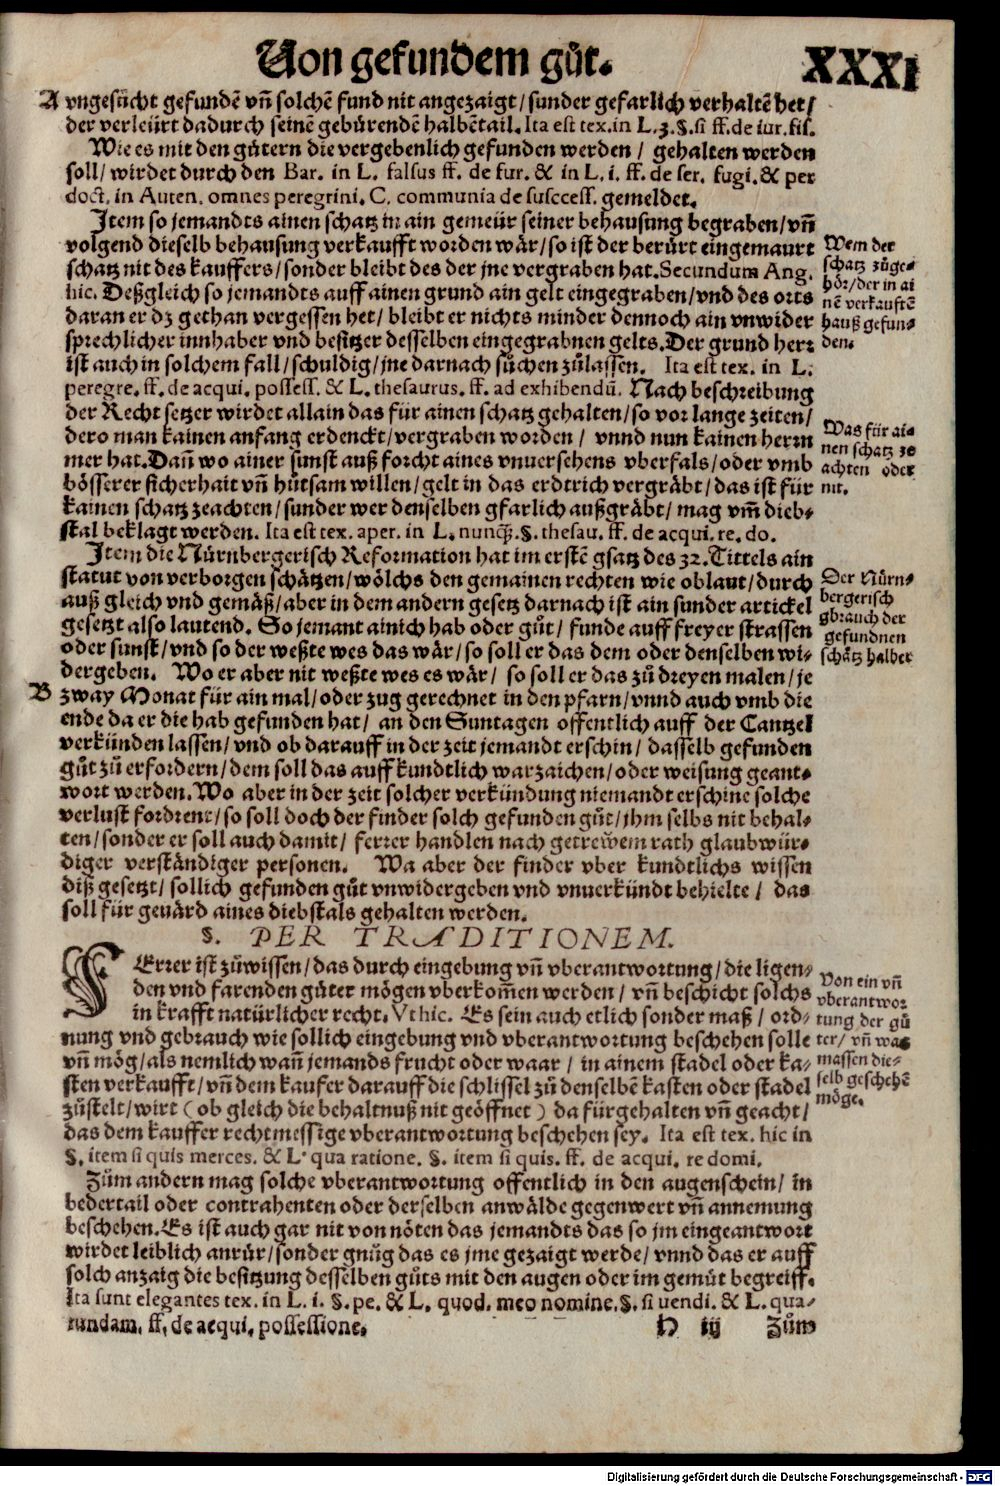 Von gefundem gůt.
XXXI
A vngesůcht gefundē vñ solchē fund nit angezaigt/ sunder gefarlich verhaltē het/
der verleürt dadurch seinē gebürendē halbētail. Ita est tex. in L. 3. §. si ff. de iur. fis.
Wie es mit den gütern die vergebenlich gefunden werden/ gehalten werden
soll/ wirdet durch den Bar. in L. falsus ff. de fur. & in L. i. ff. de ser. fugi. & per
doct. in Auten. omnes peregrini. C. communia de success. gemeldet.
Item so jemandts ainen schatz in ain gemeür seiner behausung begraben/ vñ
volgend dieselb behausung verkaufft worden wär/ so ist der berürt eingemaurt
schatz nit des kauffers/ sonder bleibt des der jne vergraben hat. Secundum Ang.
hic. Deßgleich so jemandts auff ainen grund ain gelt eingegraben/ vnd des orts
daran er dz gethan vergessen het/ bleibt er nichts minder dennoch ain vnwider
sprechlicher innhaber vnd besitzer desselben eingegrabnen gelts. Der grund herr
ist auch in solchem fall/ schuldig/ jne darnach sůchen zůlassen. Ita est tex. in L.
peregre. ff. de acqui. possess. & L. thesaurus. ff. ad exhibendū. Nach beschreibung
der Recht setzer wirdet allain das für ainen schatz gehalten/ so vor lange zeiten/
dero man kainen anfang erdenckt/ vergraben worden/ vnnd nun kainen herrn
mer hat. Dañ wo ainer sunst auß forcht aines vnuersehens vberfals/ oder vmb
bösserer sicherhait vñ hůtsam willen/ gelt in das erdtrich vergräbt/ das ist für
kainen schatz zeachten/ sunder wer denselben gfarlich außgräbt/ mag vm̃ dieb-
stal beklagt werden. Ita est tex. aper. in L. nunq̃. §. thesau. ff. de acqui. re. do.
Item die Nürnbergerisch Reformation hat im erstē gsatz des 32. Tittels ain
statut von verborgen schätzen/ wölchs den gemainen rechten wie oblaut/ durch
auß gleich vnd gemäß/ aber in dem andern gesetz darnach ist ain sunder artickel
gesetzt also lautend. So jemant ainich hab oder gůt/ funde auff freyer strassen
oder sunst/ vnd so der weßte wes das wär/ so soll er das dem oder denselben wi-
dergeben. Wo er aber nit weßte wes es wär/ so soll er das zů dreyen malen/ je
B zway Monat für ain mal/ oder zug gerechnet in den pfarn/ vnnd auch vmb die
ende da er die hab gefunden hat/ an den Suntagen offentlich auff der Cantzel
verkünden lassen/ vnd ob darauff in der zeit jemandt erschin/ dasselb gefunden
gůt zů erfordern/ dem soll das auff kundtlich warzaichen/ oder weisung geant-
wort werden. Wo aber in der zeit solcher verkündung niemandt erschine solche
verlust fordrent/ so soll doch der finder solch gefunden gůt/ jhm selbs nit behal-
ten/ sonder er soll auch damit/ ferrer handlen nach getrewem rath glaubwür-
diger verständiger personen. Wa aber der finder vber kundtlichs wissen
diß gesetzt/ sollich gefunden gůt vnwidergeben vnd vnuerkündt behielte/ das
soll für geuärd aines diebstals gehalten werden.
§. PER TRADITIONEM.
FErrer ist zůwissen/ das durch eingebung vñ vberantwortung/ die ligen-
den vnd farenden güter mögen vberkom̃en werden/ vñ beschicht solchs
in krafft natürlicher recht. Vt hic. Es sein auch etlich sonder maß/ ord-
nung vnd gebrauch wie sollich eingebung vnd vberantwortung beschehen solle
vñ mög/ als nemlich wañ jemands frucht oder waar/ in ainem stadel oder ka-
sten verkaufft/ vñ dem kaufer darauff die schlissel zů denselbē kasten oder stadel
zůstelt/ wirt (ob gleich die behaltnuß nit geöffnet) da fürgehalten vñ geacht/
das dem kauffer rechtmessige vberantwortung beschehen sey. Ita est tex. hic in
§. item si quis merces. & L. qua ratione. §. item si quis. ff. de acqui. re domi.
Zům andern mag solche vberantwortung offentlich in den augenschein/ in
bedertail oder contrahenten oder derselben anwälde gegenwert vñ annemung
beschehen. Es ist auch gar nit von nöten das jemandts das so jm eingeantwort
wirdet leiblich anrür/ sonder gnůg das es jme gezaigt werde/ vnnd das er auff
solch anzaig die besitzung desselben gůts mit den augen oder im gemüt begreiff.
Ita sunt elegantes tex. in L. i. §. pe. & L. quod. meo nomine. §. si uendi. & L. qua-
rundam. ff. de acqui. possessione.
H iij Zům
Wem der
schatz zůge-
hör/ der in ai
nē verkauftē
hauß gefun-
den.
Was für ai-
nen schatz ze
achten oder
nit.
Der Nürn-
bergerisch
gbrauch der
gefundnen
schätz halber
Von ein vñ
vberantwor
tung der gü
ter/ vñ was
massen die-
selb geschehē
möge.
Digitalisierung gefördert durch die Deutsche Forschungsgemeinschaft - DFG